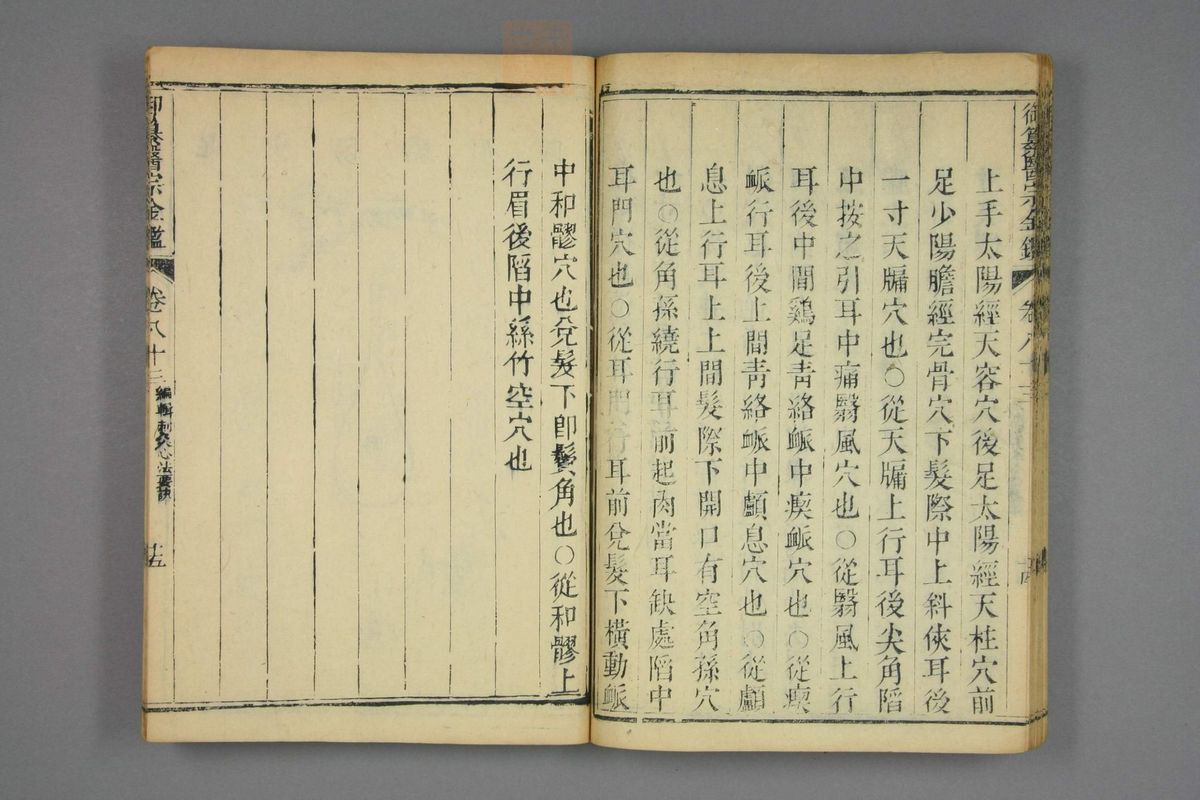 御纂醫宗金鑑 卷八十三 十四
上手太陽經天容穴後足太陽經天柱穴前
足少陽膽經完骨穴下髮際中上斜俠耳後
一寸天牖穴也○從天牖上行耳後尖角陷
中按之引耳中痛翳風穴也○從翳風上行
耳後中間鷄足靑絡衇中瘈衇穴也○從瘈
衇行耳後上間靑絡衇中顱息穴也○從顱
息上行耳上上間髮際下開口有空角孫穴
也○從角孫繞行耳前起肉當耳缺處陷中
耳門穴也○從耳門行耳前兌髮下橫動衇
中和髎穴也兌髮下卽鬢角也○從和髎上
行眉後陷中絲竹空穴也
御纂醫宗金鑑 卷八十三 編輯刺灸心法要訣 十五